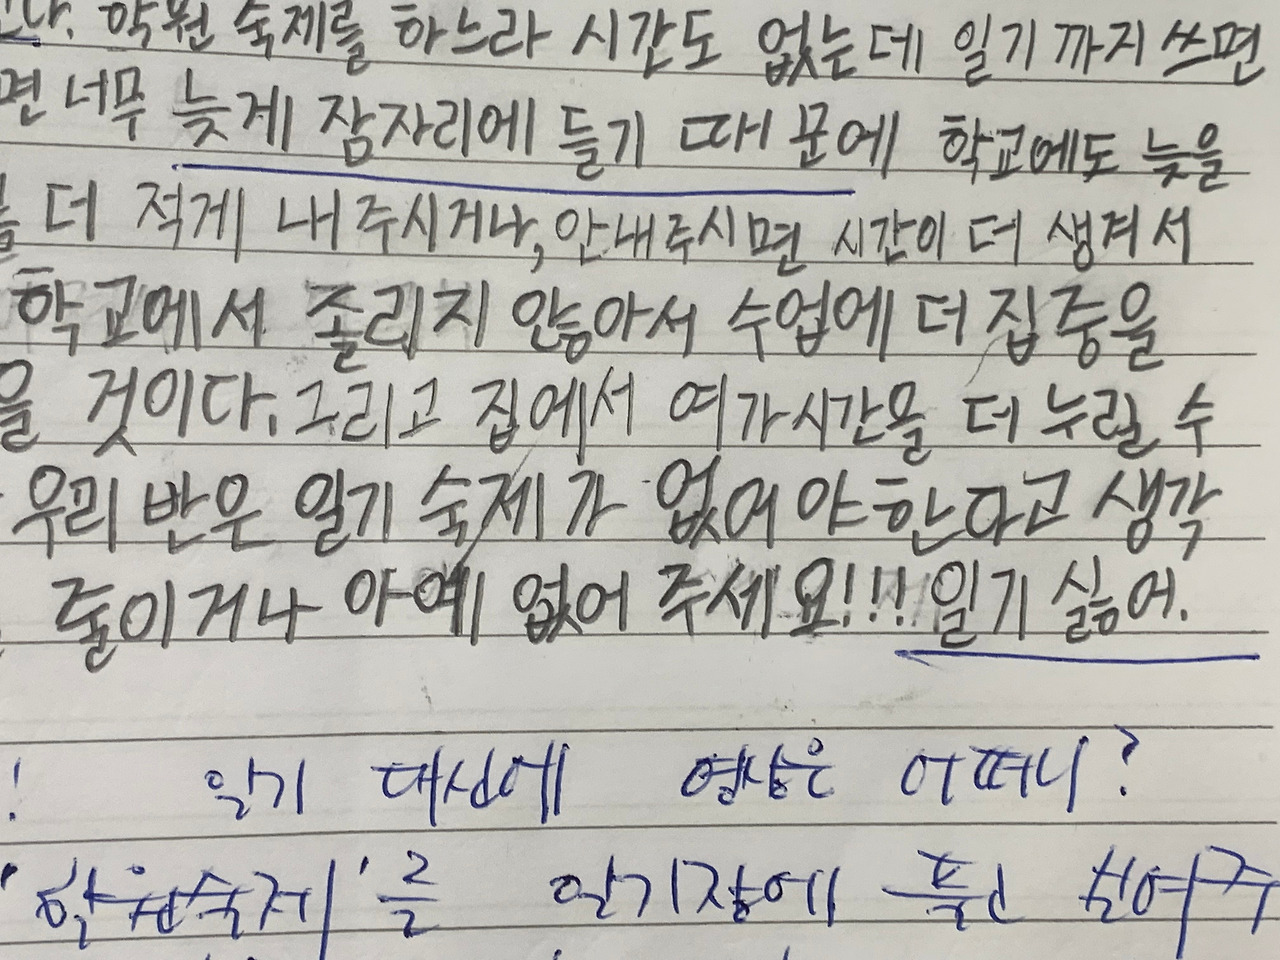 학원 숙제를 하느라 시간도 없는데 일기까지 쓰면
면 너무 늦게 잠자리에 들기 때문에 학교에도 늦을
를 더 적게 내주시거나, 안내주시면 시간이 더 생겨서
학교에서 졸리지 안능아서 수업에 더 집중을
을 것이다. 그리고 집에서 여가시간을 더 누릴 수
우리 반은 일기 숙제가 없어야 한다고 생각
줄이거나 아예 없어 주세요!!! 일기 싫어.
! 일기 대신에 영상은 어떠니?
'학원숙제'를 일기장에